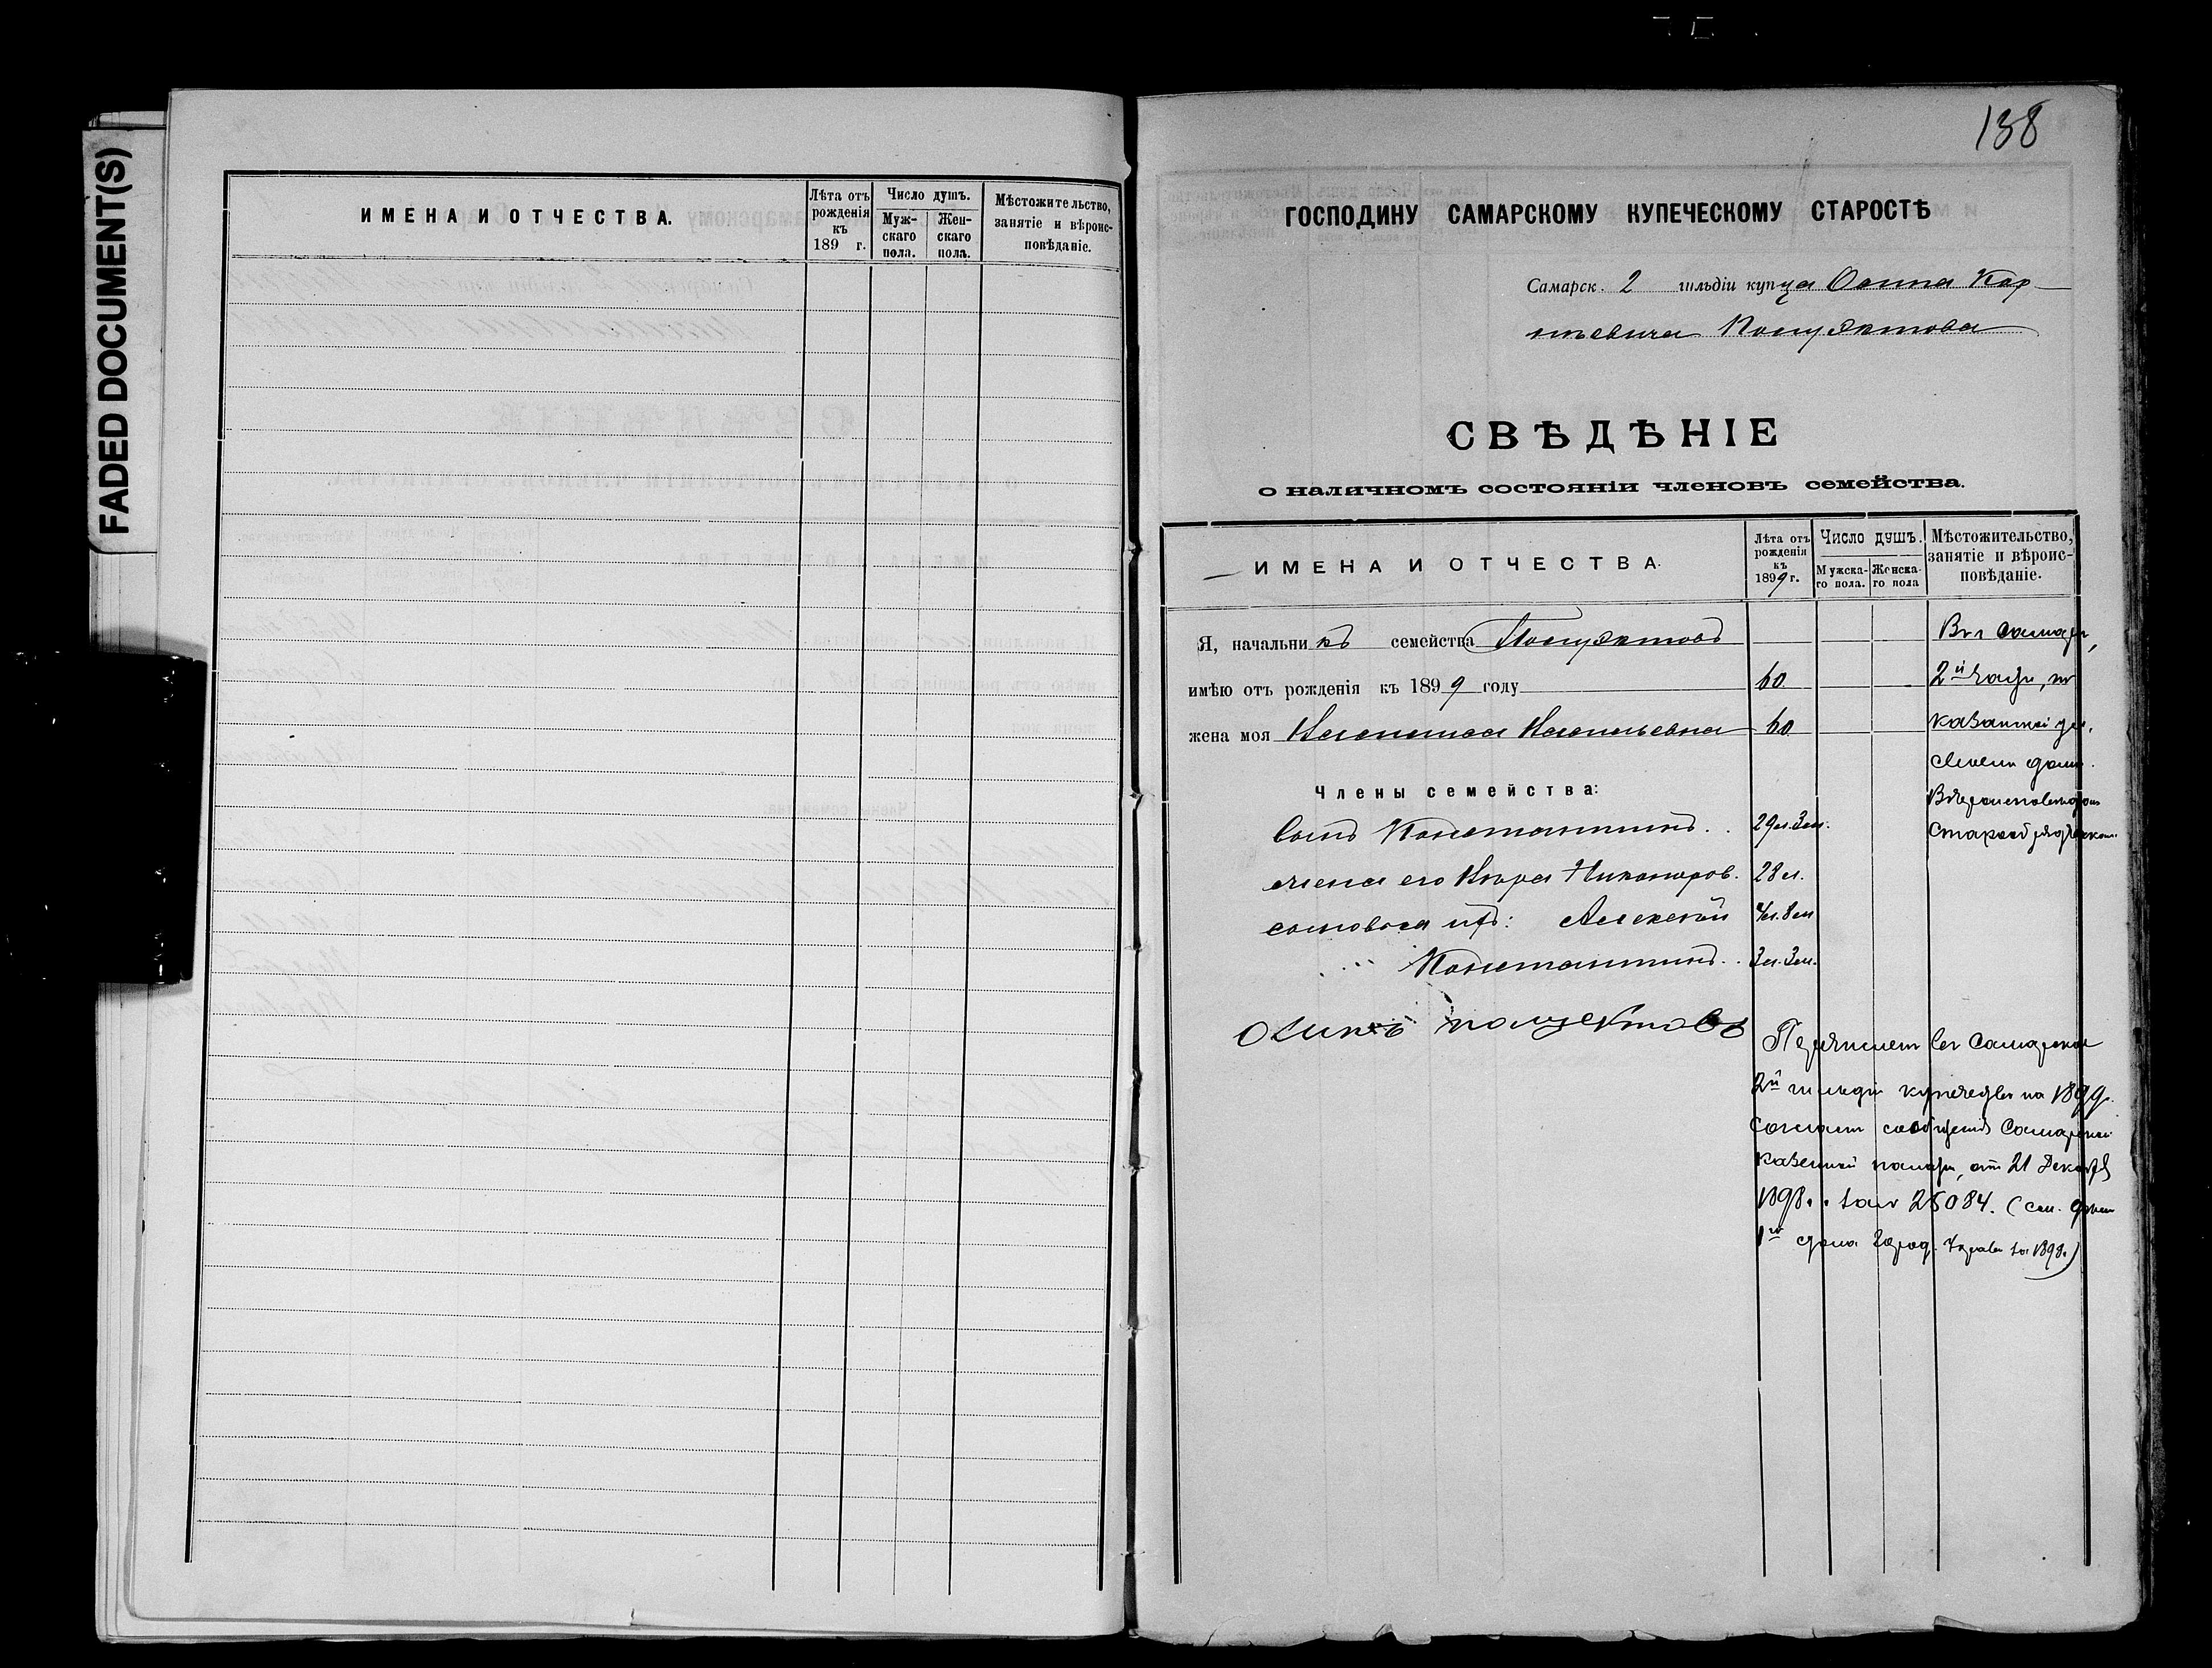 FADED DOCUMENT(S)
ИМЕНА И ОТЧЕСТВА.
Лѣта отъ рожденія къ 189 г.
Число душъ.
Мужскаго пола.
Женскаго пола.
Мѣстожительство, занятіе и вѣроисповѣданіе.
138
ГОСПОДИНУ САМАРСКОМУ КУПЕЧЕСКОМУ СТАРОСТѢ
Самарск. 2 гильдіи купца Осипа Кар-
пьевича Полуэктова
СВѢДѢНІЕ
о наличномъ состояніи членовъ семейства.
ИМЕНА И ОТЧЕСТВА.
Лѣта отъ рожденія къ 1899 г.
Число душъ.
Мужскаго пола.
Женскаго пола
Мѣстожительство, занятіе и вѣроисповѣданіе.
Я, начальникъ семейства Полуэктовъ
имѣю отъ рожденія къ 1899 году 60
жена моя Васильевна 60
Въ г Самарѣ,
2й части, по
Казанской ул.
своемъ домѣ.
Вѣроисповѣданія
Старообрядческаго
Члены семейства:
Сынъ Константинъ. 29 л. 3 м.
жена его Никаноров. 28 л.
сыновья ихъ: Алексѣй 4 л. 8 м
Константинъ. 3 л. 3 м.
Осипъ полуектовъ
Перечисленъ въ Самарское
2й гильдіи купечество на 1899 г.
согласно сообщенія Самарской
Казенной палаты, отъ 21 Декабря
1898 г. за № 25084. (см.
1го стола Город. Управы за 1898 г.)